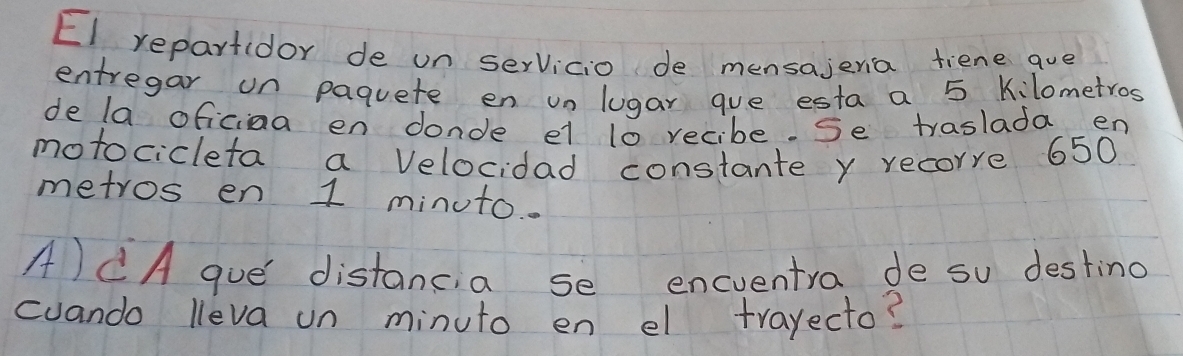 El repartidor de un servicio de mensajeria tiene que
entregar un paquete en un lugar que esta a 5 Kilometros
de la oficina en donde el lo recibe. Se traslada en
motocicleta a velocidad constante y recorre 650
metros en 1 minuto..
A) ¿A qué distancia se encuentra de su destino
cuando lleva un minuto en el trayecto?